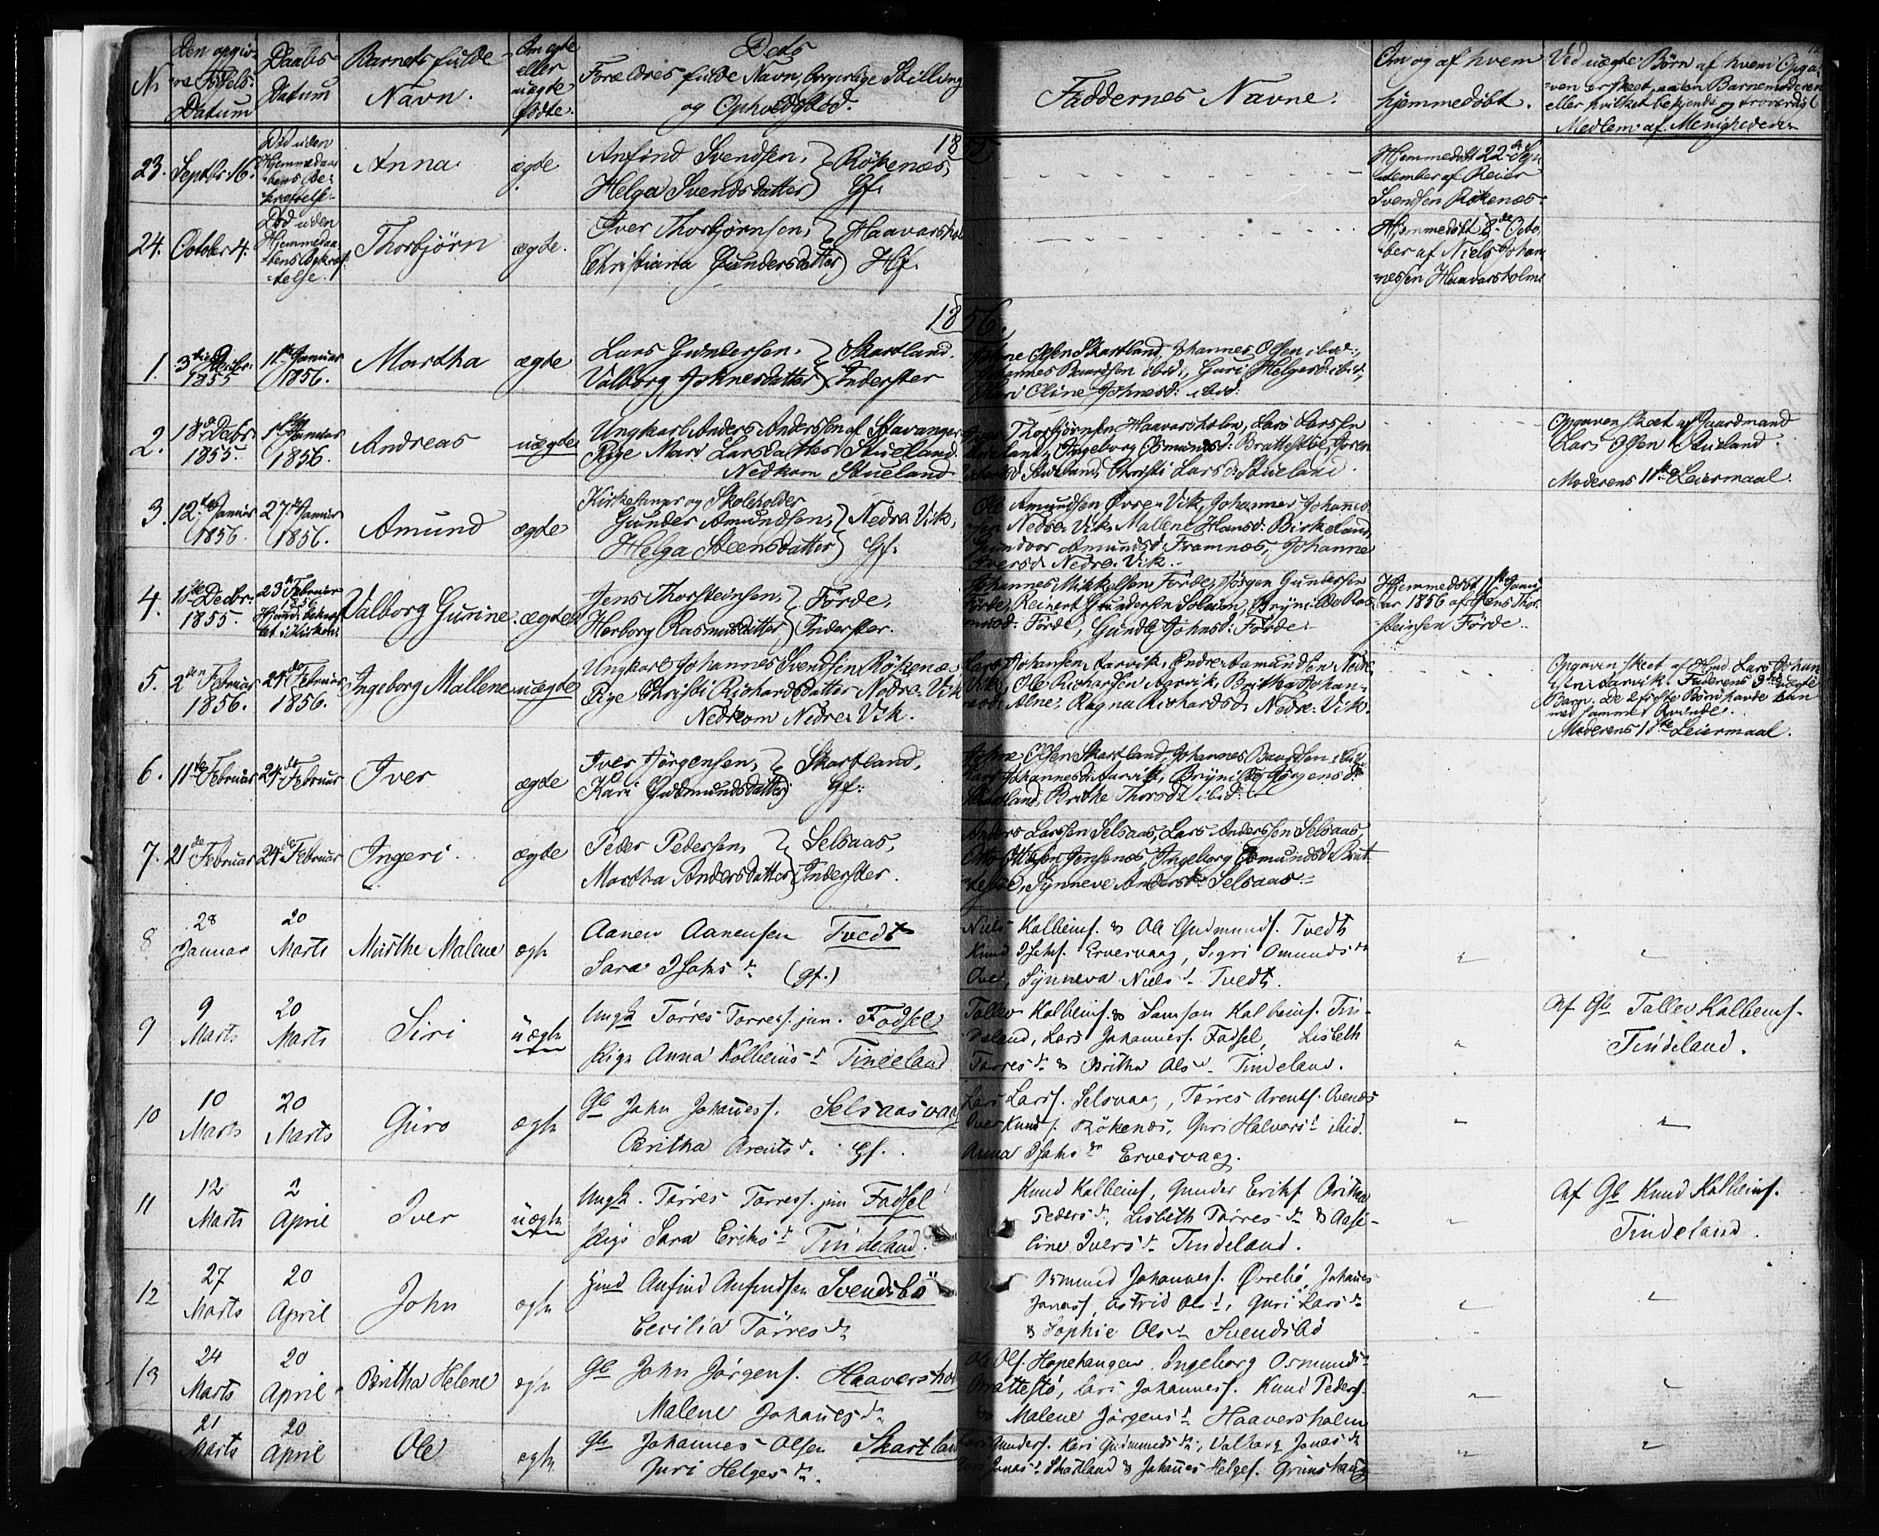 N:
Den opgiv-
ne Fødsels
Datum
Daabs
Datum
Barnets fulde
Navn.
Om ægte
eller
uægte
født.
Dets
Forældres fulde Navn, borgerlige Stilling
og Opholdsted.
Faddernes Navne.
Om og af hvem
hjemmedøbt.
Ved uægte Børn af hvem Opga-
ven er skeet, uden Barnemoderen
eller hvilket bekjendt og troværdigt
Medlem af Menigheden
1855
23. Septbr 16.
Død uden
Hjemmedaa-
bens Be-
kræftelse
Anna
ægte
Anfind Svendsen,
Helga Svendsdatter
Røkenæs,
Gf.
Hjemmedøbt 22de Sep-
tember af Reier
Svendsen Røkenæs
24. October 4.
Død uden
Hjemmedaa-
bens Bekræf-
telse.
Thorbjørn
ægte.
Iver Thorbjørnsen,
Christiana Gundersdatter
Haavarshol
Hf.
Hjemmedøbt 8de Octo-
ber af Niels Johan-
nessen Haavarsholm
1856.
1.
1855
11te Januar
1856.
Martha
ægte
Lars Gundersen,
Valborg Johnesdatter
Skartland.
Inderster
Johne Olsen Skartland, Johannes Olsen ibid:,
Johannes Baardsen ibid:, Guri Helgesd: ibid:,
Kari Oline Johnesd: ibid:
2.
13de Decbr.
1855.
1ste Januar
1856.
Andreas
uægte
Ungkarl Anders Andersen af Stavanger
Pige Mari Larsdatter Stueland.
Nedkom Stueland
Iver Thorbjørnsen Haavarsholm, Lars Larsen
Stueland, Ingeborg Osmundsd: Brattestøe, Søren
Stueland, Christi Larsd: Stueland.
Opgaven skeet af Gaardmand
Lars Olsen Stueland
Moderens 1ste Leiermaal.
3.
12te Januar
1856.
27de Januar
1856.
Amund
ægte
Kirkesanger og Skoleholder
Gunder Amundsen,
Helga Steensdatter
Nedre Vik,
Gf:
Ole Amundsen Øvre Vik, Johannes Johannes-
sen Nedre Vik, Mallene Hansd: Birkeland,
Gundvor Amundsd: Framnæs, Johanne
Iversd: Nedre Vik.
4.
1ste Decbr.
1855.
23de Februar
1856
Hjemd: bekræf-
tet i Kirken
Valborg Gurine
ægte
Jens Thorsteinsen,
Herborg Rasmusdatter
Førde,
Inderster.
Johannes Mikkelsen Førde, Jørgen Gundersen
Førde, Reinert Gundersen Soleim, Brynilde Ras-
musd: Førde, Gunda Johnsd: Førde.
Hjemmedøbt 11te Janu-
ar 1856 af Jens Thor-
steinsen Førde.
5.
2den Februar
1856.
24de Februar
1856.
Ingeborg Mallene
uægte
Ungkarl Johannes Svendsen Røkenæs
Pige Christi Richardsdatter Nedre Vik
Nedkom Nedre Vik.
Lars Johansen Aarvik, Endre Aamundsen Nedre
Vik, Ole Richardsen Aarvik, Britha Johan-
nesd: Alne, Ragna Richardsd: Nedre Vik.
Opgaven skeet af Hmd. Lars Johan-
sen Aarvik. Faderens 3die uægte
Barn. De 2 første Børn havde han
med samme Qvinde.
Moderens 1ste Leiermaal.
6.
11te Februar
24de Februar
Iver
ægte
Iver Jørgensen,
Kari Gudmundsdatter
Skartland,
Gf:
Johne Olsen Skartland, Johannes Baardsen ibid:
Johannesd: Aarvik, Brynilde Jørgensd:
Skartland, Brithe Thorsd: ibid:
7.
21de Februar
24de Februar
Ingeri.
ægte
Peder Pedersen,
Martha Andersdatter
Selsaas,
Inderster.
Anders Larssen Selsaas, Lars Andersen Selsaas,
Otto Ottesen Jensenæs, Ingeborg Osmundsd: Brat-
testøe, Synneve Andersd: Selsaas.
8
28
Januar
20
Marts
Marthe Malene
ægte
Aanen Aanensen Tvedt
Sara Isaksdr. (gf.)
Niels Kolbeinsf. & Ole Gudmundsf. Tvedt
Knud Isaksf. Ervesvaag, Sigri Omundsdr
Ove, Synneva Nielsd. Tvedt.
9
9
Marts
20
Marts
Siri
uægte
Ungk. Torres Torresf. jun. Fodsel
Pige Anna Kolbeinsdr Tindeland
Tollev Kolbeinsf. & Samson Kolbeinsf. Tin-
deland, Lars Johannesf. Fadsel, Lisbeth
Torresdr & Britha Olsdr Tindeland.
Af Gb. Tollev Kolbeinsf.
Tindeland.
10
10
Marts
20
Marts
Guro
ægte
Gb. John Johannesf. Selsaasvaag
Britha Arentsdr. gf.
Lars Larsf. Selsvaag, Torres Arentsf. Ovenæs
Iver Knudsf. Røkenæs, Guri Halvorsd. ibid.
Anna Isaksdr Ervesvaag.
11
12
Marts
2
April
Iver
uægte
Ungk. Torres Torresf. jun Fodsel
Pige Sara Eriksdr Tindeland.
Knud Kolbeinsf, Gunder Eriksf Britha
Pedersdr, Lisbeth Torresdr & Aase-
line Iversdr Tindeland.
Af Gb Knud Kolbeinsf.
Tindeland.
12
27
Marts
20
April
John
ægte
Hmd Anfind Anfindsen Svendsbö
Cecilia Torresdr
Osmund Johannesf. Øvrebö, Johannes
Jonasf, Astrid Olsd, Guri Larsdr
& Sophie Olsdr Svendsbö
13
24
Marts
20
April
Britha Helene
ægte
Gb John Jörgensf. Haavershol
Malene Johannesdr
Ole Olsf. Hopehaugen, Ingeborg Osmundsdr
Brattestö, Lars Johannesf. Knud Pedersf.
& Malene Jörgensdr Haaversholm
21
Marts
20
April
Ole
ægte
Gb Johannes Olsen Skartland
Guri Helgesdr.
Gundersf. Kari Gudmundsdr, Valborg Jonasdr
Jonasdr Skartland & Johannes Helgesf. Grönshaug